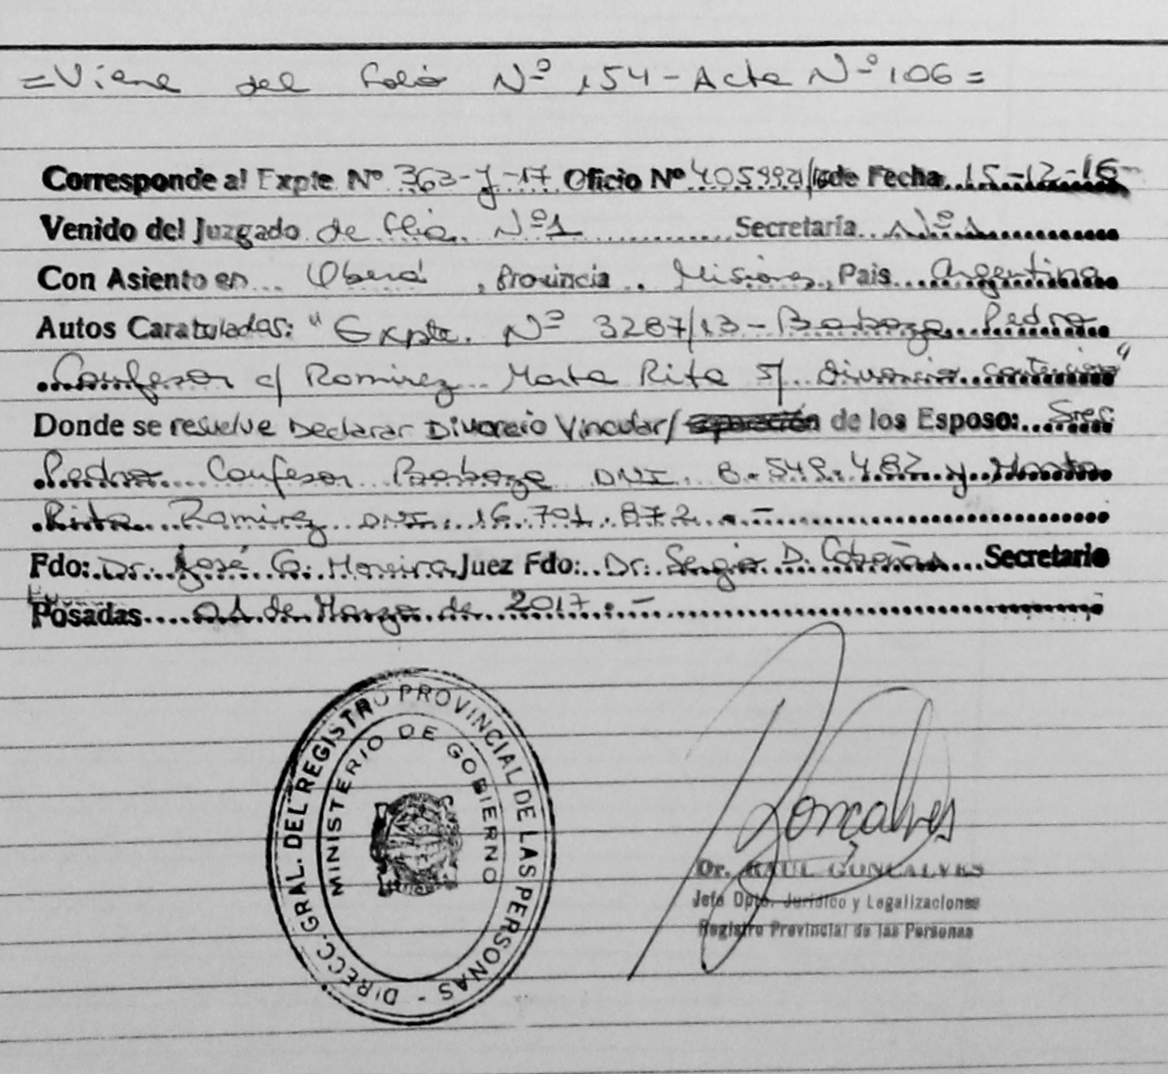 =Viene del folio Nº 154-Acta Nº 106=
Corresponde al Expte Nº 363-J-17 Oficio Nº /16 de Fecha 15-12-16-
Venido del Juzgado de flia. Nº1 Secretaría Nº1
Con Asiento en Oberá, Provincia. Misiones, Pais Argentina
Autos Caratulados: "Expte. Nº 3287/13-Barboza Pedro
Confesor c/ Ramirez Marta Rita S/ Divorcio contencioso"
Donde se resuelve Declarar Divorcio Vincular/separación de los Esposo: Sres
Pedro Confesor Barboza DNI. 8.549.482 y Marta
Rita Ramirez DNI. 16.701.872.-
Fdo: Dr. José G. Moreira Juez Fdo: Dr. Sergio D. Secretario
Posadas 01 de Marzo de 2017.-
DIRECC. GRAL. DEL REGISTRO PROVINCIAL DE LAS PERSONAS -
MINISTERIO DE GOBIERNO
Gonçalves
Dr. RAUL GONÇALVES
Jefe Dpto. Jurídico y Legalizaciones
Registro Provincial de las Personas